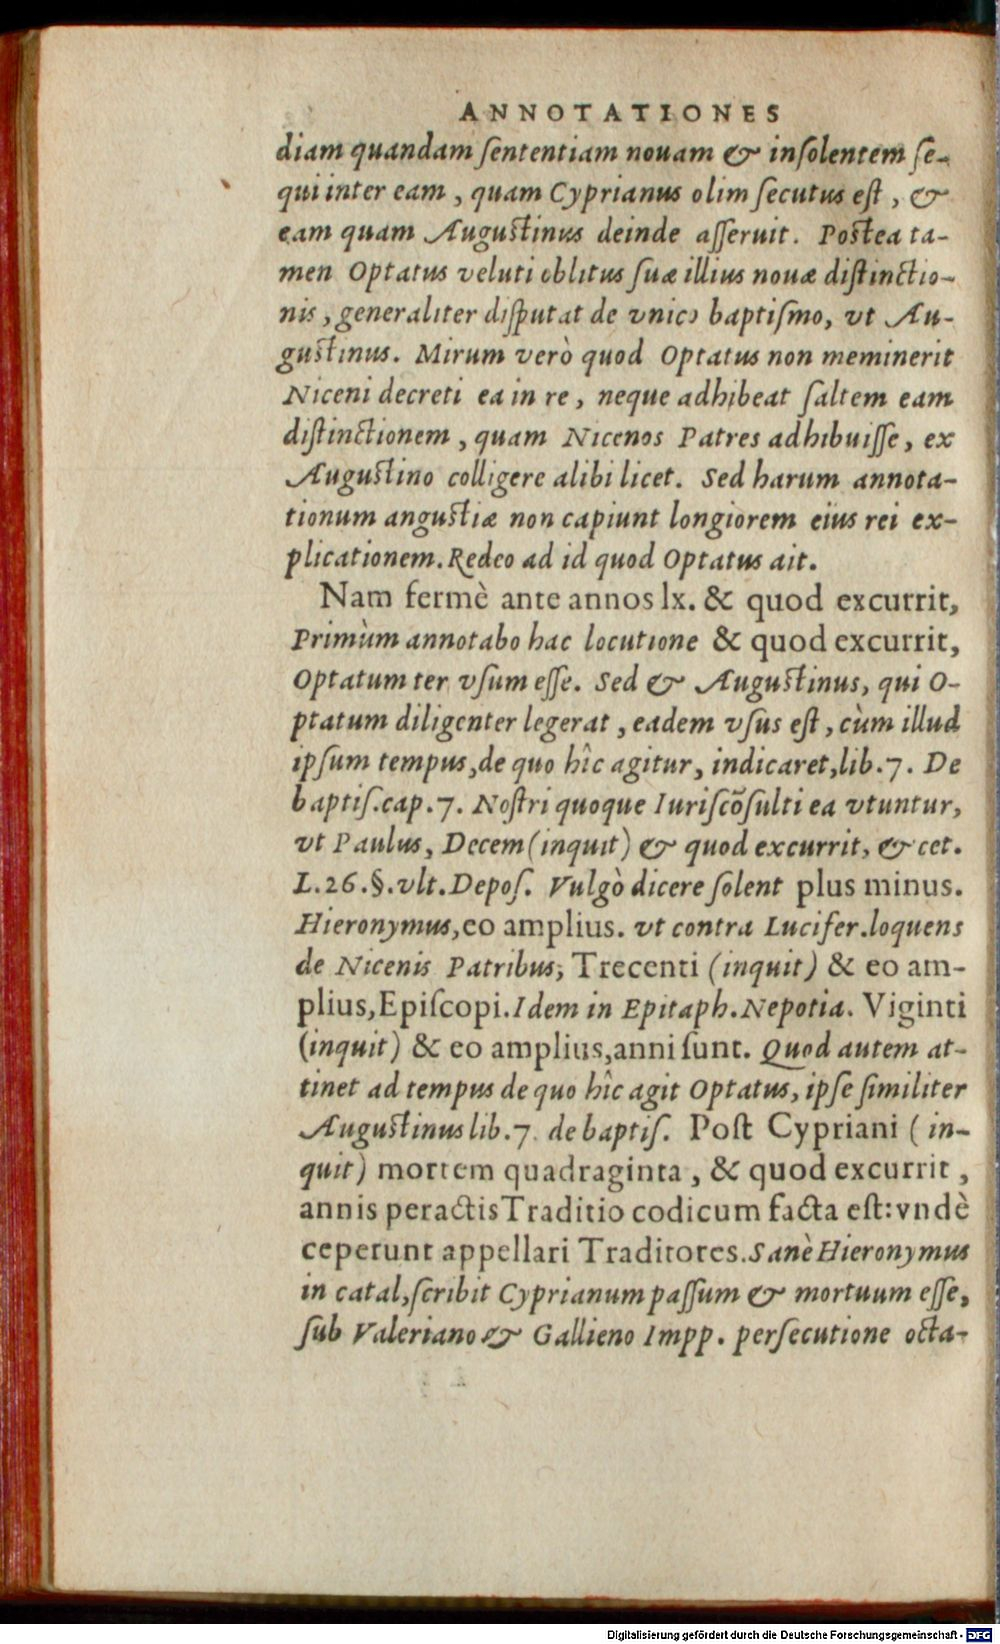 ANNOTATIONES
diam quandam ſententiam nouam & inſolentem ſe-
qui inter eam, quam Cyprianus olim ſecutus eſt, &
eam quam Auguſtinus deinde aſſeruit. Poſtea ta-
men Optatus veluti oblitus ſuæ illius nouæ diſtinctio-
nis, generaliter diſputat de vnico baptiſmo, vt Au-
guſtinus. Mirum verò quod Optatus non meminerit
Niceni decreti ea in re, neque adhibeat ſaltem eam
diſtinctionem, quam Nicenos Patres adhibuiſſe, ex
Auguſtino colligere alibi licet. Sed harum annota-
tionum anguſtiæ non capiunt longiorem eius rei ex-
plicationem. Redeo ad id quod Optatus ait.
Nam fermè ante annos lx. & quod excurrit,
Primùm annotabo hac locutione & quod excurrit,
Optatum ter vſum eſſe. Sed & Auguſtinus, qui O-
ptatum diligenter legerat, eadem vſus eſt, cùm illud
ipſum tempus, de quo hîc agitur, indicaret, lib.7. De
baptiſ.cap.7. Noſtri quoque Iuriſcõſulti ea vtuntur,
vt Paulus, Decem (inquit) & quod excurrit, & cet.
L.26.§.vlt.Depoſ. Vulgò dicere ſolent plus minus.
Hieronymus, eo amplius. vt contra Lucifer.loquens
de Nicenis Patribus, Trecenti (inquit) & eo am-
plius, Epiſcopi. Idem in Epitaph.Nepotia. Viginti
(inquit) & eo amplius, anni ſunt. Quod autem at-
tinet ad tempus de quo hîc agit Optatus, ipſe ſimiliter
Auguſtinus lib.7. de baptiſ. Poſt Cypriani (in-
quit) mortem quadraginta, & quod excurrit,
annis peractis Traditio codicum facta eſt: vndè
ceperunt appellari Traditores. Sanè Hieronymus
in catal, ſcribit Cyprianum paſſum & mortuum eſſe,
ſub Valeriano & Gallieno Impp. perſecutione octa-
Digitalisierung gefördert durch die Deutsche Forschungsgemeinschaft - DFG